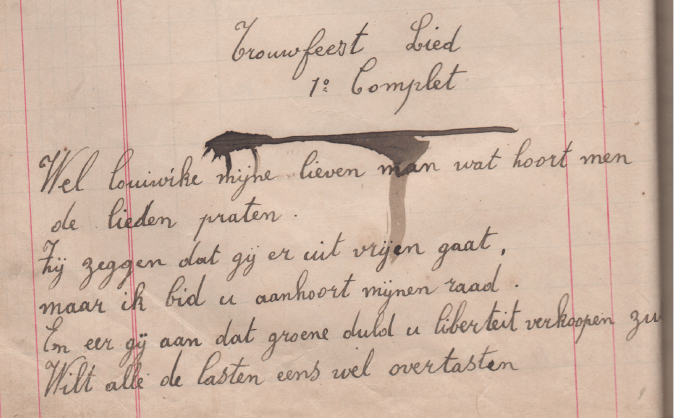 Trouwfeest Lied
1º Complet
Wel louiwike mijne lieven man wat hoort men
de lieden praten.
Zij zeggen dat gij er uit vrijen gaat,
maar ik bid u aanhoort mijnen raad.
En eer gij aan dat groene duld u liberteit verkoopen
Wilt alle de lasten eens wel overtasten